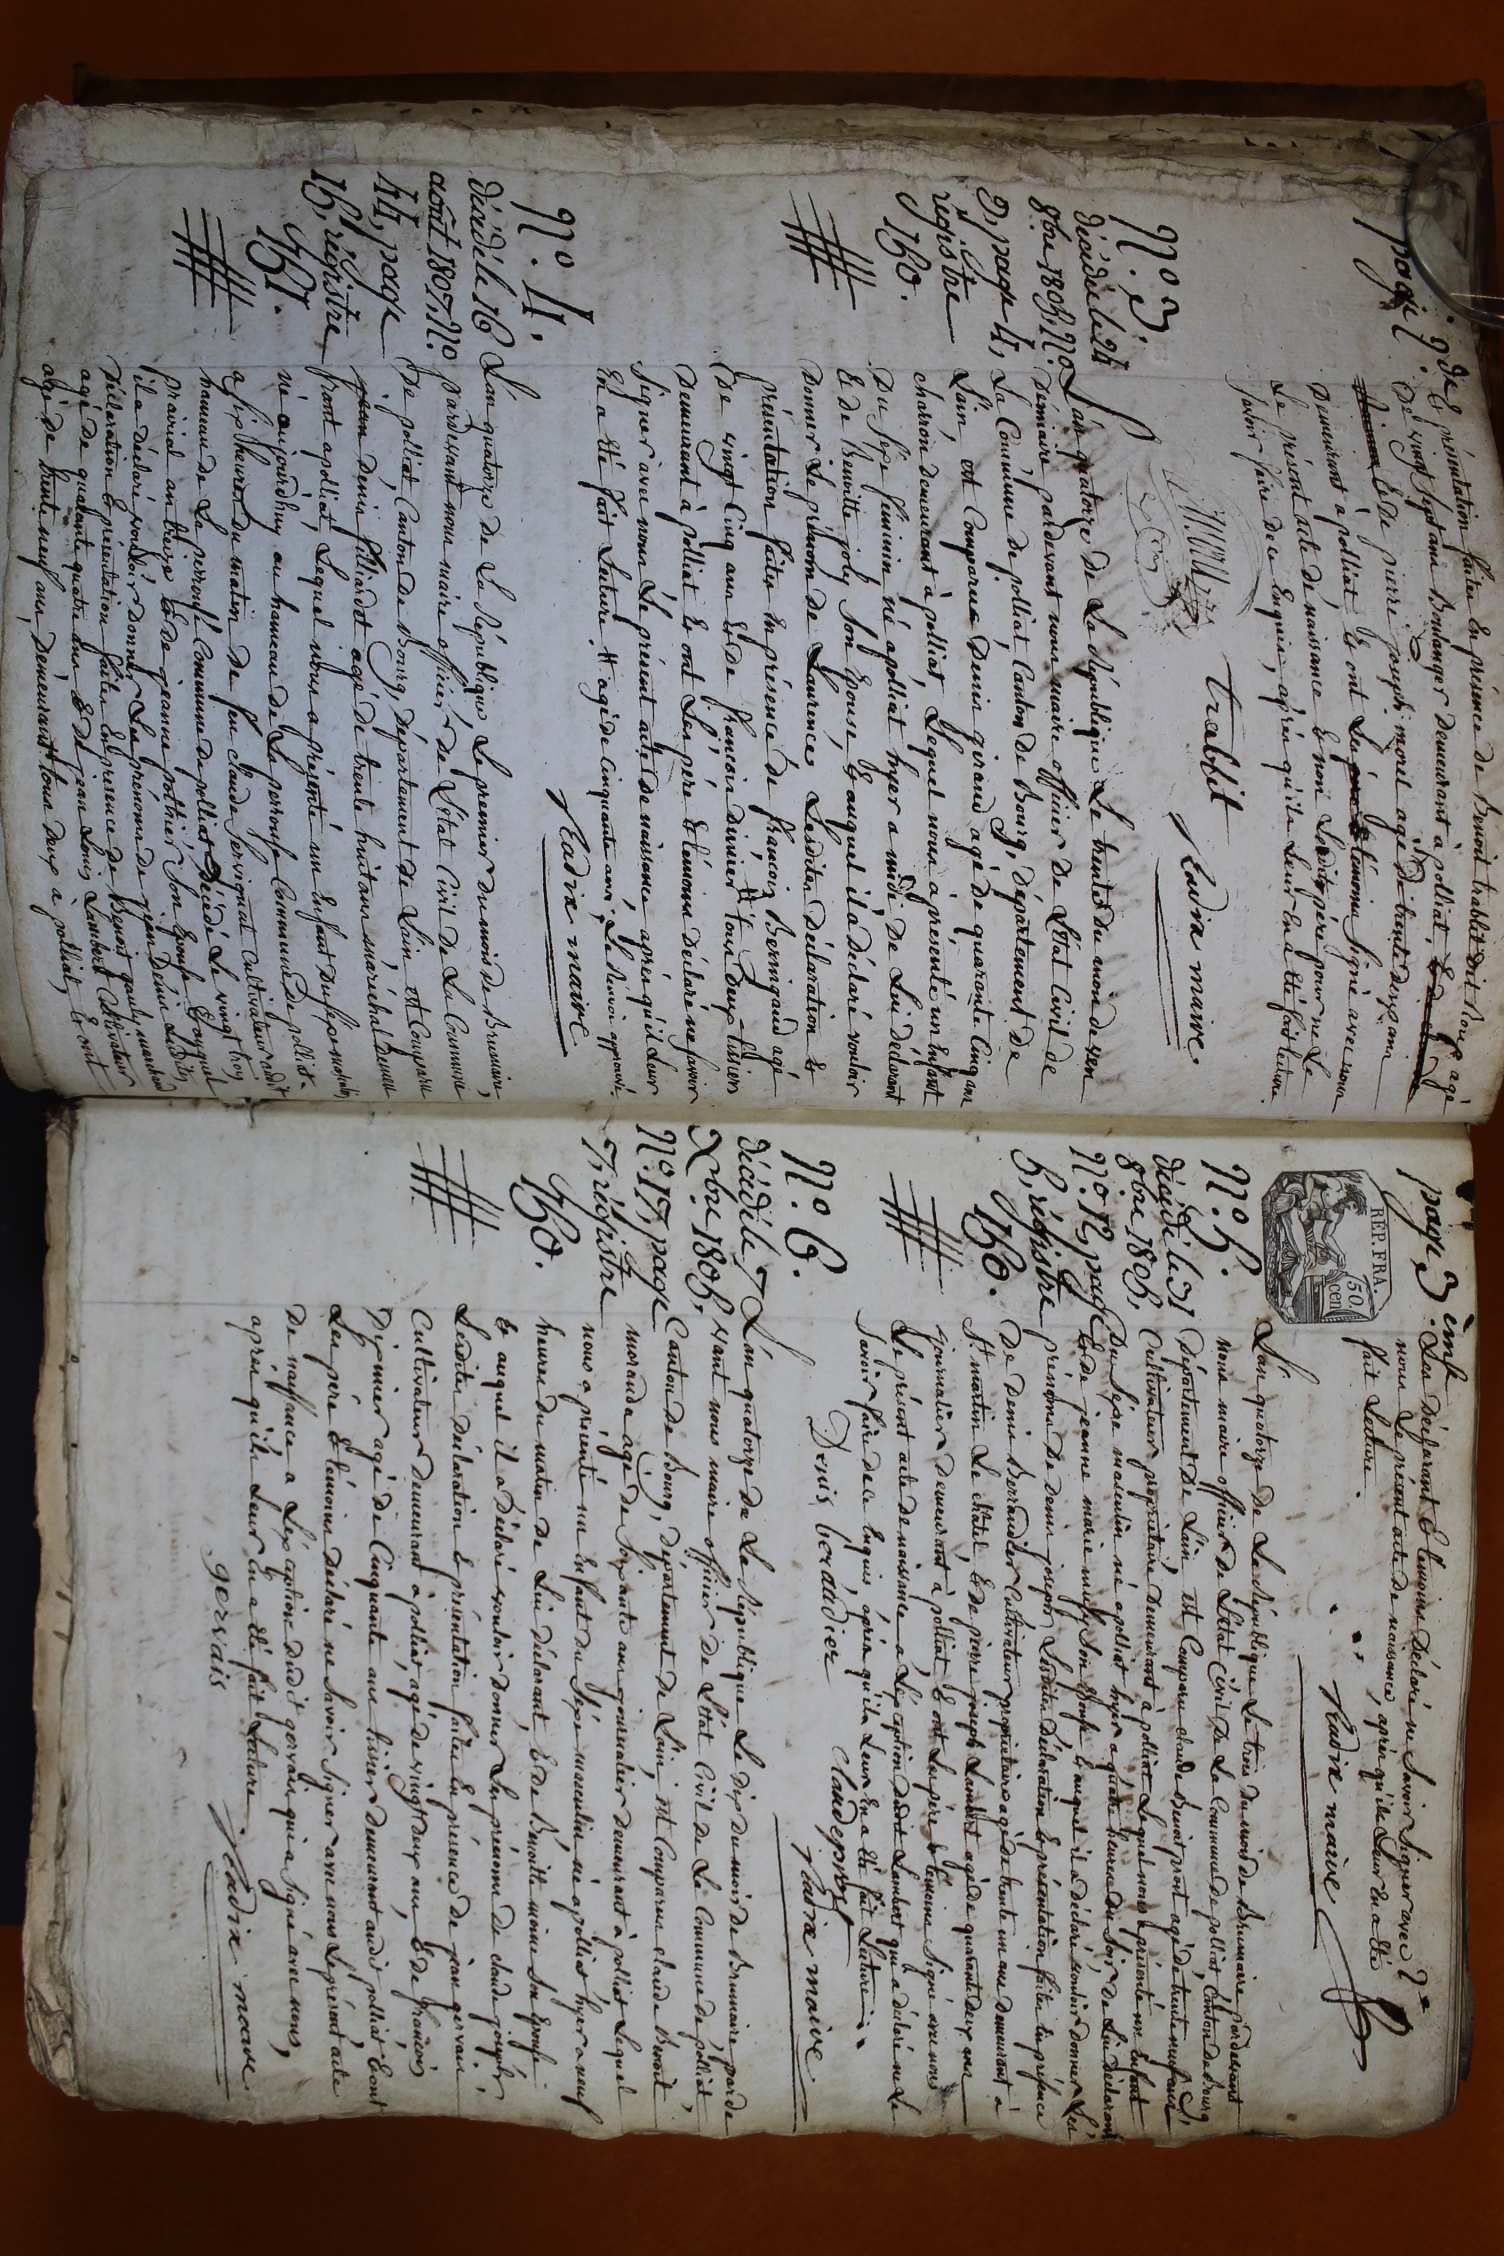 page 2de
& présentation faites En présence de Benoit trablit dit Roux agé
De vingt sept ans Boulanger demeurant à polliat,
Et de pierre joseph morel agé de trente deux ans
Demeurant à polliat & ont Les père & témoins signé avec nous
Le présent acte de naissance & non Ledit père pour ne Le
savoir faire de ce Enquis, après qu'ils Leur En a Eté fait Lecture.
trablit Radix maire.
N.o 3
décédé le 24
8bre 1805, No.
2, page 4,
régistre
150.
L'an quatorze de La République Le trente du mois de ven
démiaire pardevant nous maire officier de L'état Civil de
La Commune de polliat Canton de Bourg, département de
L'ain, est Comparu Denis girand agé de quarante Cinq ans
charron demeurant à polliat, Lequel nous a présenté un Enfant
Du sexe féminin né a polliat hyer a midi De Lui déclarant
& de Benoitte joly son Epouse, & auquel il a déclaré vouloir
Donner Le prénom de Laurence Lesdites déclaration &
présentation faites En présence de françois Bernigaud agé
De vingt Cinq ans & de françois # tous deux tissiers
Demeurant à polliat & ont Les père & témoins déclaré ne savoir
signer avec nous Le présent acte de naissance, après qu'il Leur
En a Eté fait Lecture. # agé de Cinquante ans, Le Renvoi approuvé.
Radix maire
N.o 4.
décédé le 16
août 1807. No.
44, page
15, registre
151.
L'an quatorze de La République Le premier du mois de Brumaire,
pardevant nous maire officier de L'état Civil de La Commune
De polliat Canton de Bourg, département de L'ain est Comparu
Denis filliardet agé de trente huit ans maréchal Demeu
rant a polliat, Lequel nous a présenté un Enfant Du sexe masculin,
né aujourdhuy au hameau de La perrouse Commune de polliat
a six heures du matin de feu claude servignat Cultivateur audit
hameau de La perrouse Commune de polliat Décédé Le vingt trois
prairial an treize & de jeanne pothier, son Epouse, & auquel
il a déclaré vouloir donner Les prénoms de jean Denis Lesdites
Déclaration & présentation faites En présence de Benoit gauly marchand
agé de quarante quatre ans & de jean Louis Lambert Cultivateur
agé de trente neuf ans, Demeurant tous deux à polliat, & ont
page, 3 eme
Les déclarant & témoins déclaré ne savoir signer avec
nous Le présent acte de naissance, après qu'ils Leur En a Eté
fait Lecture.
Radix maire
REP. FRA.
50.
cen
N.o 5.
décédé le 31
8bre 1805,
N.o 12, page
5, régistre
150.
L'an quatorze de La République Le trois du mois de Brumaire pardevant
nous maire officier de L'état Civil de La Commune de polliat, Canton de Bourg
Département de L'ain est Comparu claude Benoit prost agé de trente neuf ans
Cultivateur propriétaire Demeurant à polliat Lequel nous a présenté un Enfant
Du sexe masculin né a polliat hyer a quatre heures du soir, de Lui déclarant
& de jeanne marie son Epouse & auquel il a déclaré vouloir donner Les
prénoms de Denis joseph Lesdites Déclaration & présentation faites En présence
De Denis Berraudier Cultivateur propriétaire agé de trente un ans demeurant à
St. martin Le chatel, & de pierre joseph Lambert agé de quarante deux ans
journalier demeurant à polliat & ont Les père & témoins signé avec nous
Le présent acte de naissance a L'éxception dudit Lambert qui a déclaré ne Le
savoir faire de ce Enquis, après qu'ils Leur En a Eté fait Lecture.
Denis beraudier claude prost
Radix maire
N.o 6.
décédé le 7
Xbre 1805,
N.o 17, page
7, régistre
150.
L'an quatorze de La République Le dix du mois de Brumaire parde
vant nous maire officier de L'état Civil de La Commune de polliat,
Canton de Bourg, département de L'ain, est Comparu claude Benoit
morand agé de soixante ans journalier demeurant à polliat Lequel
nous a présenté un Enfant du sexe masculin né a polliat hyer a neuf
heures du matin de Lui déclarant, & de Benoitte moine son Epouse
& auquel il a déclaré vouloir donner Les prénoms de claude joseph,
Lesdites déclaration & présentation faites En présence de jean gervais
Cultivateur demeurant à polliat, agé de vingt deux ans, & de françois
agé de Cinquante ans tissier demeurant audit polliat & ont
Les père & témoins déclaré ne savoir signer avec nous Le présent acte
de naissance a L'éxception dudit gervais qui a signé avec nous,
après qu'ils Leur En a Eté fait Lecture.
gervais Radix maire